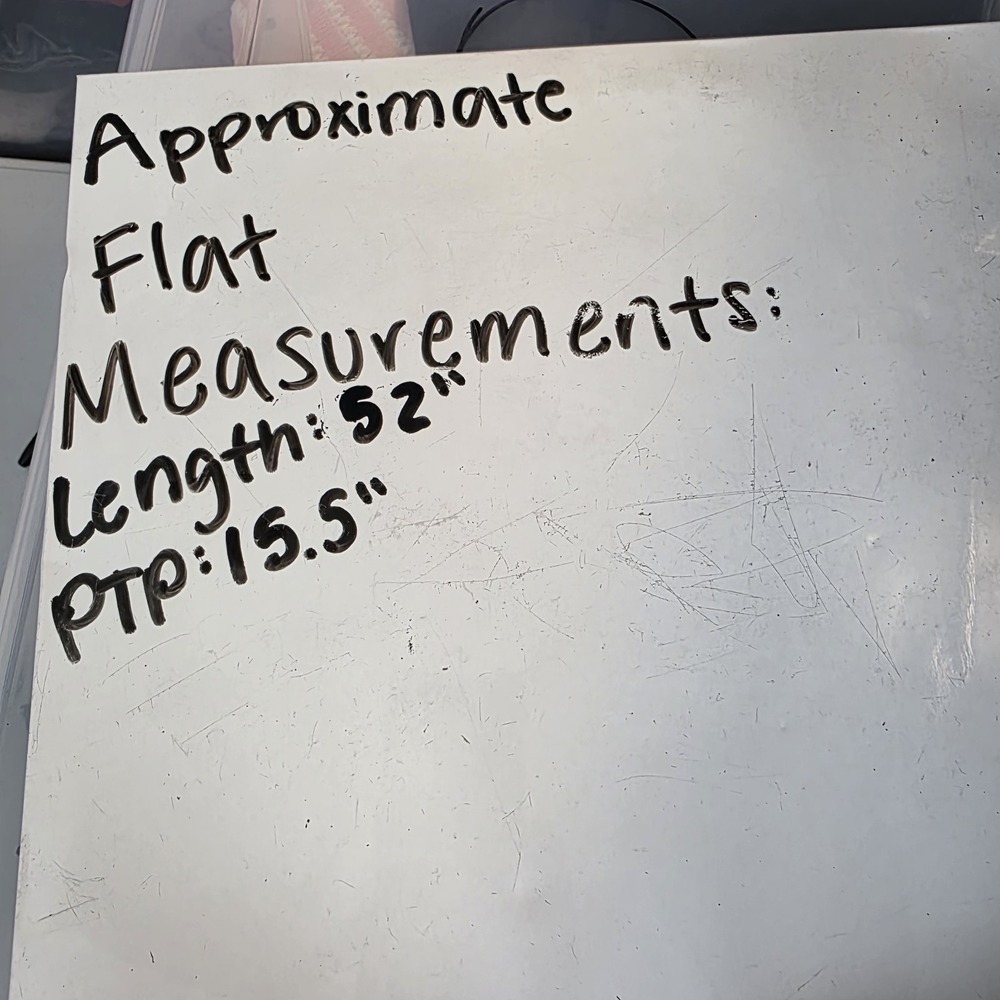 Approximate
Flat
Measurements:
Length: 52"
PTP: 15.5"